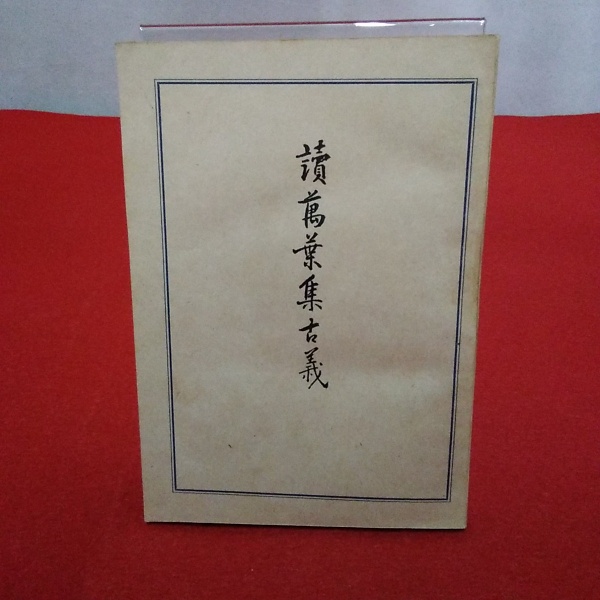 讀萬葉集古義